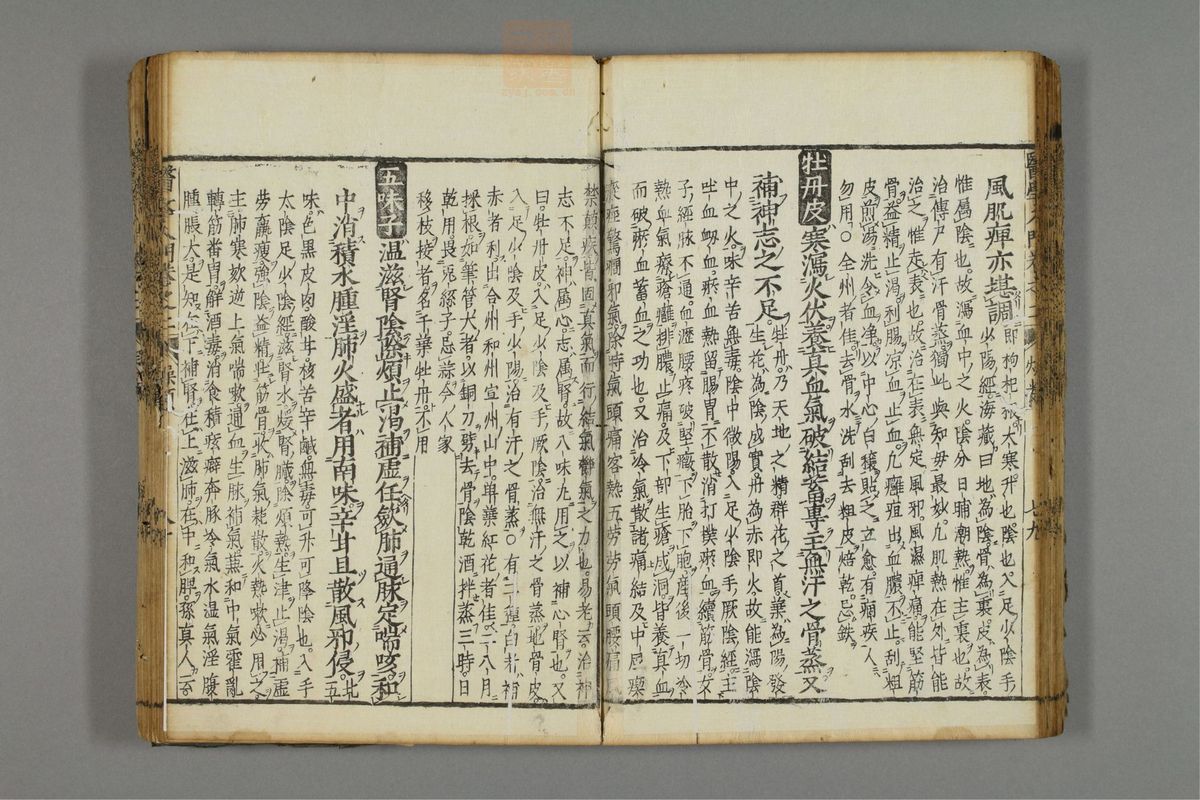 風肌痺亦堪調即枸杞根大寒升也陰也入足少陰手
少陽經海藏曰地為陰骨為裏皮為表
惟屬陰也故瀉血中之火陰分日晡潮熱惟主裏也故
治傳尸有汗骨蒸獨此與知母最妙凡肌熱在外皆能
治之惟走表也故治在表無定風邪風濕痺痛能堅筋
骨益精止渴利腸凉血止血凡癰疽出血膿不止刮粗
皮煎湯洗令血淨以中心白穰貼之立愈有痼疾人
勿用○全州者佳去骨水洗刮去粗皮焙乾忌鉄
牡丹皮寒瀉火伏養真血氣破結蓄專主無汗之骨蒸又
補神志之不足牡丹乃天地之精群花之首葉為陽發
生花為陰成實丹為赤即火故能瀉陰
中之火味辛苦無毒陰中微陽入足少陰手厥陰經主
吐血衂血瘀血血熱留腸胃不散消打撲瘀血續筋骨女
子經脉不通血瀝腰疼破堅癥下胎下胞産後一切冷
熱血氣療癰瘡排膿止痛及下部生瘡成洞皆養真血
而破瘀血蓄血之功也又治冷氣散諸痛結及中風瘛
瘲痙驚癇邪氣除時氣頭痛客熱五勞勞氣頭腰痛
禁顛疾皆固真氣而行結氣靜氣之力也易老云治神
志不足神屬心志屬腎故八味丸用之以補心腎也又
曰牡丹皮入足少陰及手厥陰治無汗之骨蒸地骨皮
入足少陰及手少陽治有汗之骨蒸○有二種白者補
赤者利出合州和州宣州山中單葉紅花者佳二八月
採根如筆管大者以銅刀劈去骨陰乾酒拌蒸三時日
乾用畏兎絲子忌蒜今人家
移枝接者名千葉牡丹不用
五味子温滋腎陰除煩止渴補虛任斂肺通脉定喘咳和
中消積水腫淫肺火盛者用南味辛甘且散風邪侵北五
味色黒皮肉酸甘核苦辛鹹無毒可升可降陰也入手
太陰足少陰經滋腎水煖腎臟除煩熱生津止渴補虛
勞羸瘦強陰益精壯筋骨收肺氣耗散火熱嗽必用之
主肺寒欬逆上氣喘嗽通血生脉補氣兼和中氣霍亂
轉筋番胃解酒毒消食積痃癖奔豚冷氣水温氣淫腹
腫脹大是知在下補腎在上滋肺在中和脾孫真人云